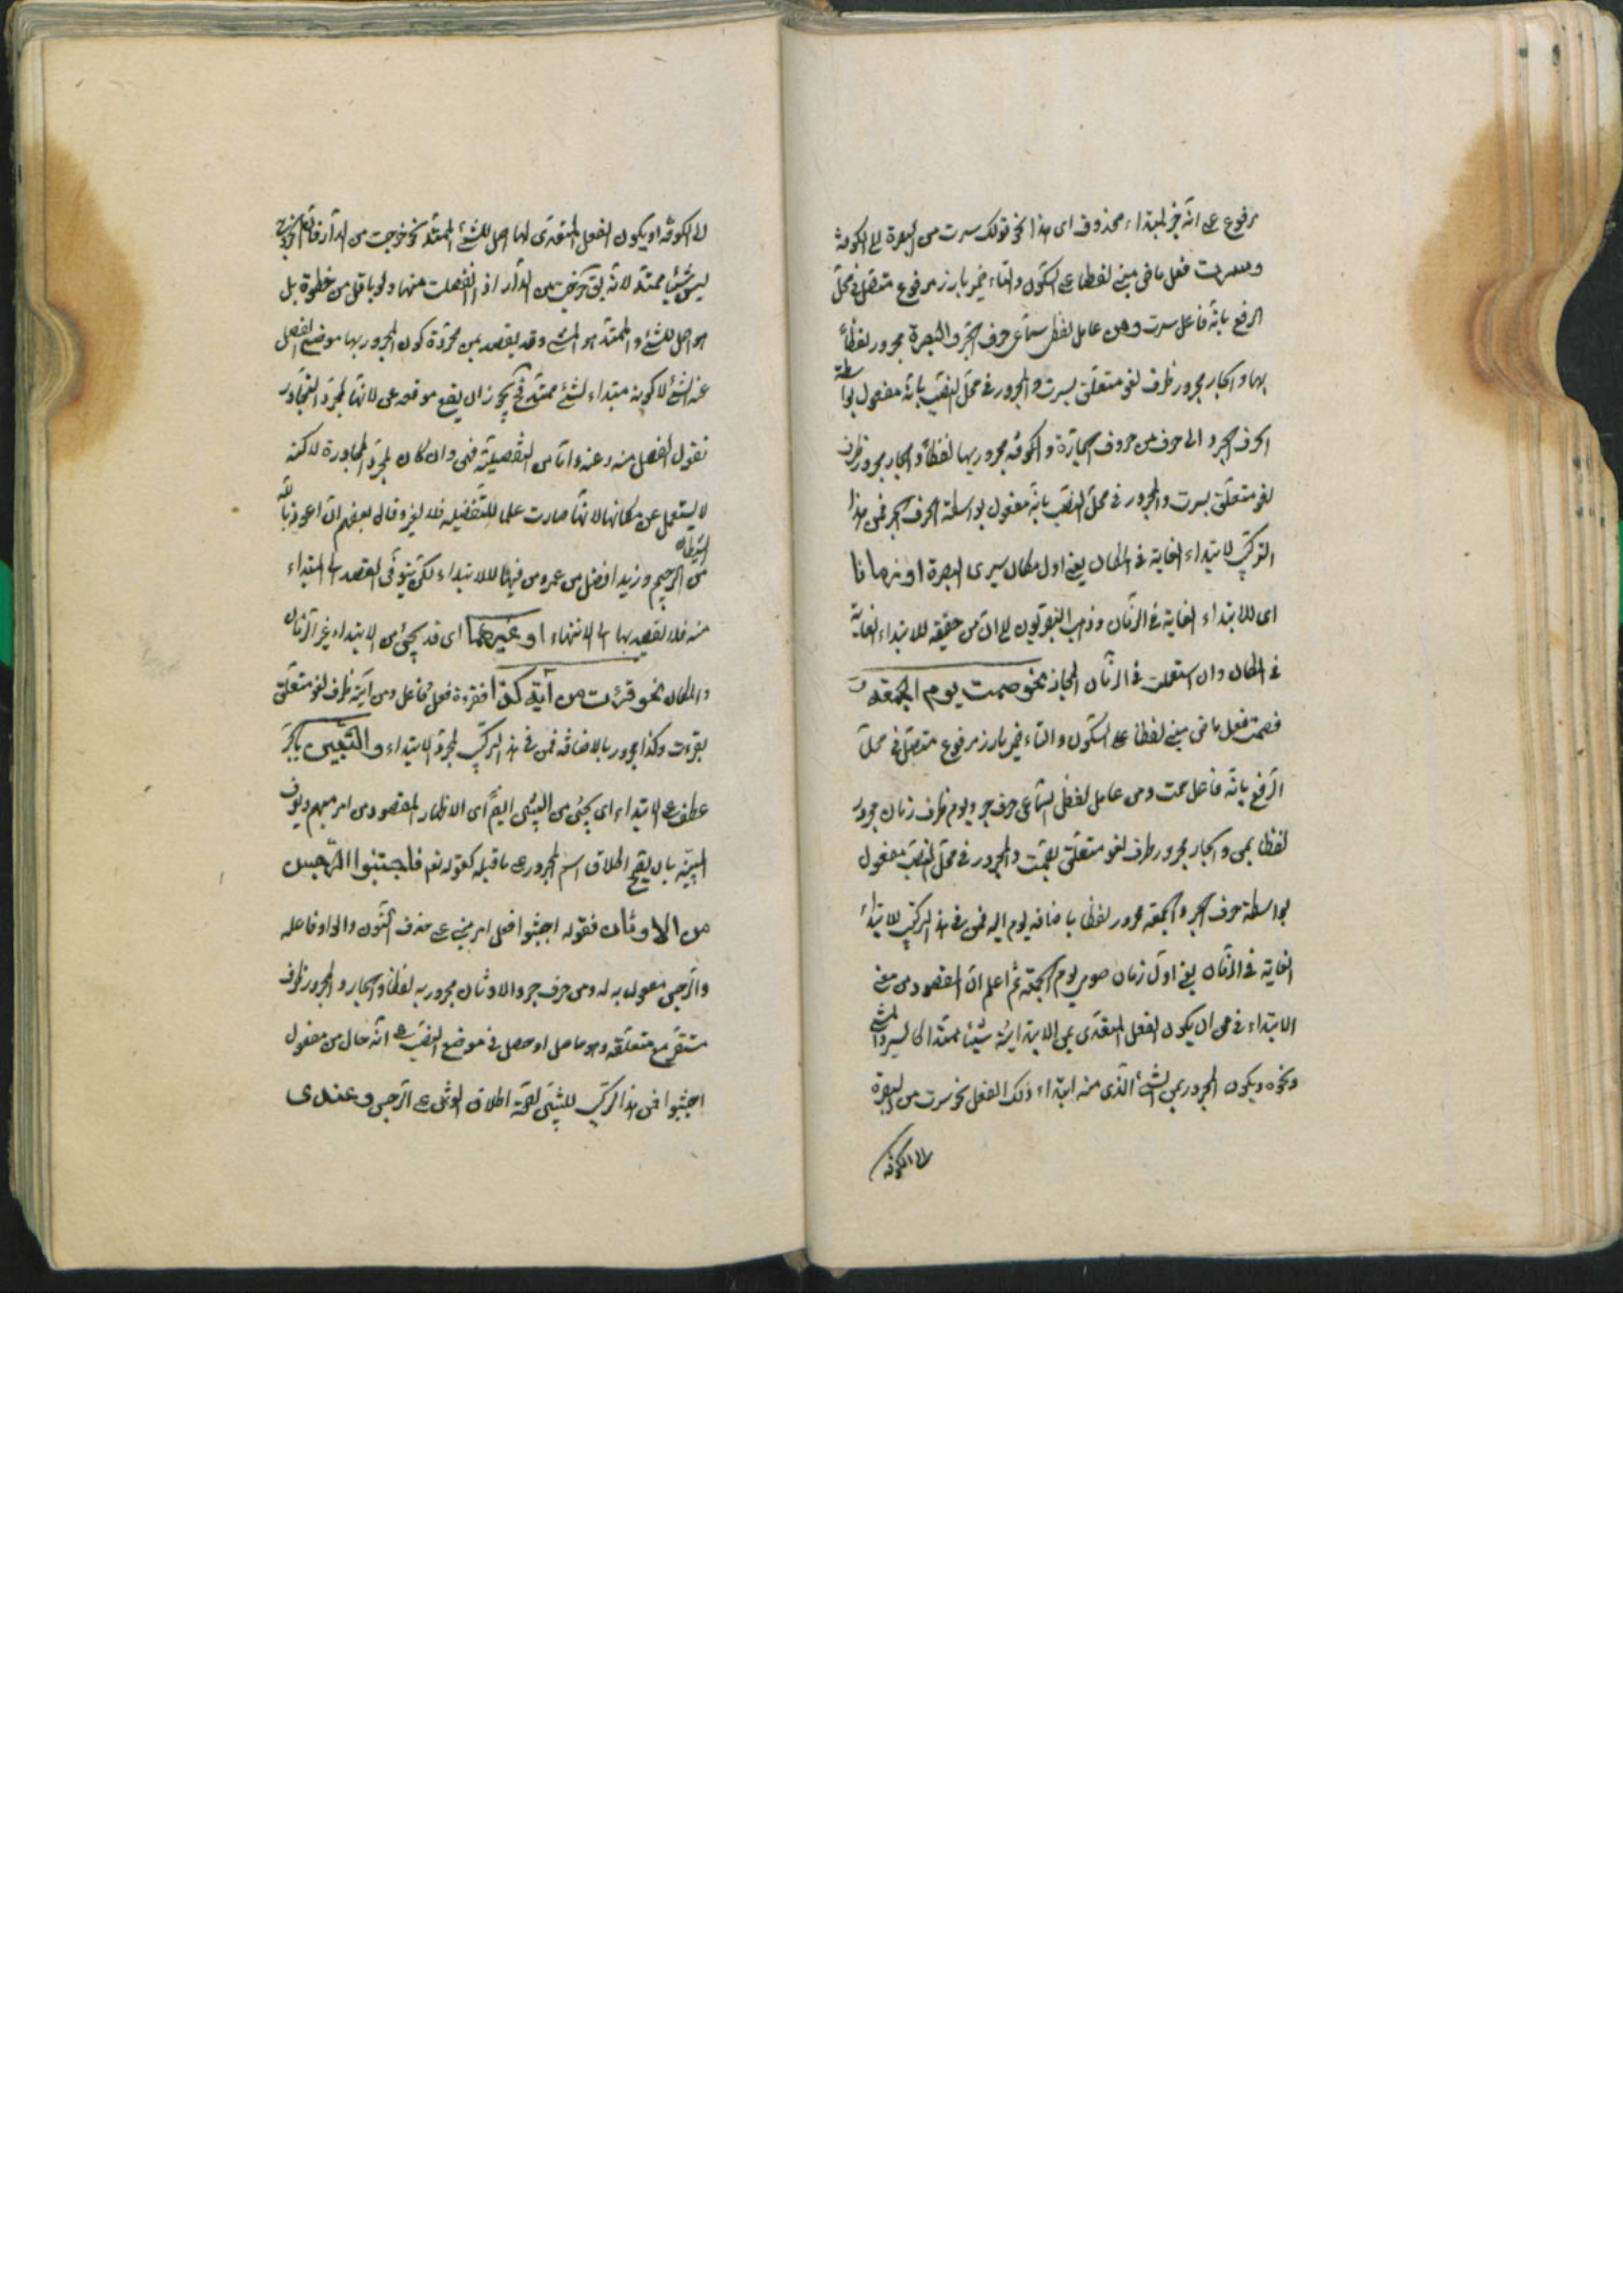 مرفوع على انه خبر لمبتداء محذوف اى هذا نحو قولك سرت من البصرة الى الكوفة
وسرت فعل ماضى مبنى لفظا على السكون والتاء ضمير بارز مرفوع متصل فى محل
الرفع بانه فاعل سرت ومن عامل لفظى سماعى حرف الجر والبصرة مجرور لفظاً
بها والجار مجرور ظرف لغو متعلق بسرت والمجرور فى محل النصب بانه مفعول بواسطة
الحرف الجر والى حرف من حروف الجارة والكوفة مجرور بها لفظاً والجار مجرور ظرف
لغو متعلق بسرت والمجرور فى محل النصب بانه مفعول بواسطة الحرف الجر فمن هذا
التركيب لابتداء الغاية فى المكان يعنى اول مكان سيرى البصرة او زمانا
اى للابتداء الغاية فى الزمان وذهب البصريون الى ان من حقيقة للابتداء الغاية
فى المكان وان استعملت فى الزمان المجاز نحو صمت يوم الجمعة
فصمت فعل ماضى مبنى لفظا على السكون والتاء ضمير بارز مرفوع متصل فى محل
الرفع بانه فاعل صمت ومن عامل لفظى السماعى حرف جر ويوم ظرف زمان مجرور
لفظا بمن والجار مجرور ظرف لغو متعلق بصمت والمجرور فى محل النصب مفعول
بواسطة حرف الجر والجمعة مجرور لفظا باضافة يوم اليه فمن فى هذ التركيب للابتداء
الغاية فى الزمان يعنى اول زمان صومى يوم الجمعة ثم اعلم ان المقصود من معنى
الابتداء فى من ان يكون الفعل المتعدى بمن الابتدائية شيئا ممتدا كالسير والمشى
ونحوه ويكون المجرور بمن الشئ الذى منه ابتداء ذلك الفعل نحو سرت من البصرة
الى الكوفة
الى الكوفة او يكون الفعل المتعدى لها اصل للشئ الممتد نحو خرجت من الدار فان الخروج
ليس شيئا ممتدا لانه يقال خرجت من الدار اذا انفصلت منها ولو باقل من خطوة بل
هو اصل للشئ والممتد هو المشى وقد يقصد بمن مجردة كون المجرور بها موضع انفصل
عنه الشئ لا كونه مبتداء لشئ ممتد فح يجوز ان يقع موقعه عن لانها لمجرد التجاوز
تقول انفصل منه وعنه واما من التفضيلية فهى وان كان لمجرد المجاورة لاكنه
لا يستعمل عن مكانها لانها صارت علما للتفضيله فلا يغير وقال بعضهم ان اعوذ بالله
من الشيطان الرجيم وزيد افضل من عمرو من فيهما للابتداء لكن يتوفى القصد الى ابتداء
منه فلا يقصد بها الى الانتهاء او غيرهما اى قد يجئ من الابتداء غير الزمان
والمكان نحو قرئت من آية كذا فقرءة فعل فاعل ومن آية ظرف لغو متعلق
بقرءت وكذا مجرور بالاضافة فمن فى هذ التركيب لمجرد الابتداء والتبيين بالجر
عطف على الابتداء اى يجئ من التبيين ايضاً اى الاظهار المقصود من امر مبهم ويعرف
البينه بان يصح اطلاق اسم المجرور على ما قبله كقوله تعم فاجتنبوا الرجس
من الاوثان فقوله اجتنبوا فعل امر مبنى على حذف النون والواو فاعله
والرجس مفعول به له ومن حرف جر والاوثان مجرور به لفظا والجار والمجرور ظرف
مستقر مع متعلقه وهو حاصل او حصل فى موضع النصب على انه حال من مفعول
اجتنبوا فمن هذ التركيب للتبيين لصحة اطلاق الوثن على الرجس وعندى